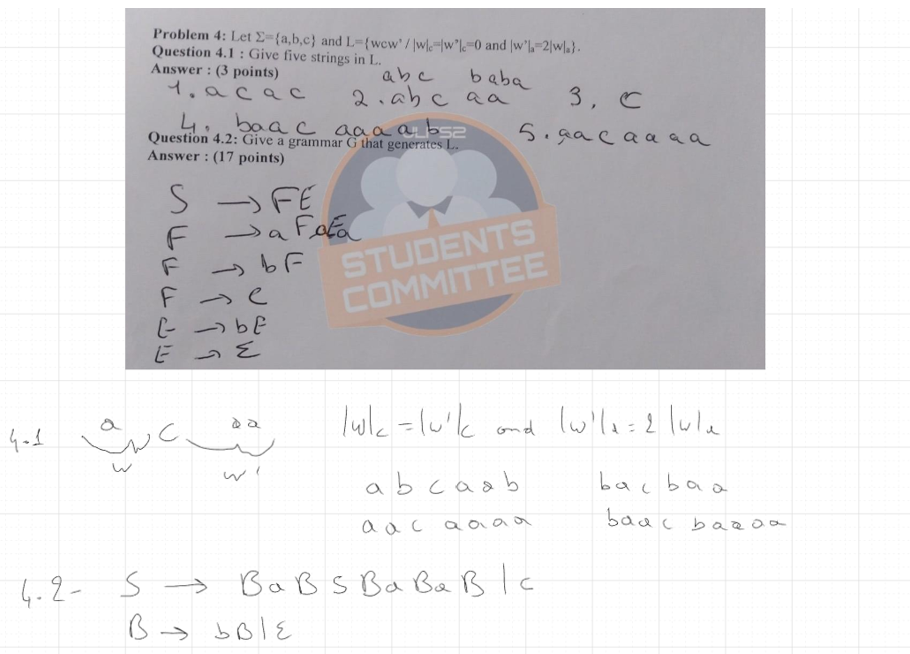 Problem 4: Let Σ={a,b,c} and L={wcw' / |w|c=|w'|c=0 and |w'|a=2|w|a}.
Question 4.1 : Give five strings in L.
Answer : (3 points)
abc baba
1. acac 2. abc aa 3. c
4. baac aaaab 5. aacaaaa
Question 4.2: Give a grammar G that generates L.
Answer : (17 points)
S → FE
F →
F → bF
F → c
E → bE
E → Σ
ULFS2
STUDENTS
COMMITTEE
4.1 a c aa |w|c = |w'|c and |w'|a = 2 |w|a
w w'
abcaab bacbaa
aacaaaa baac baaaa
4.2- S → BaBSBaBaB | c
B → bB | ε